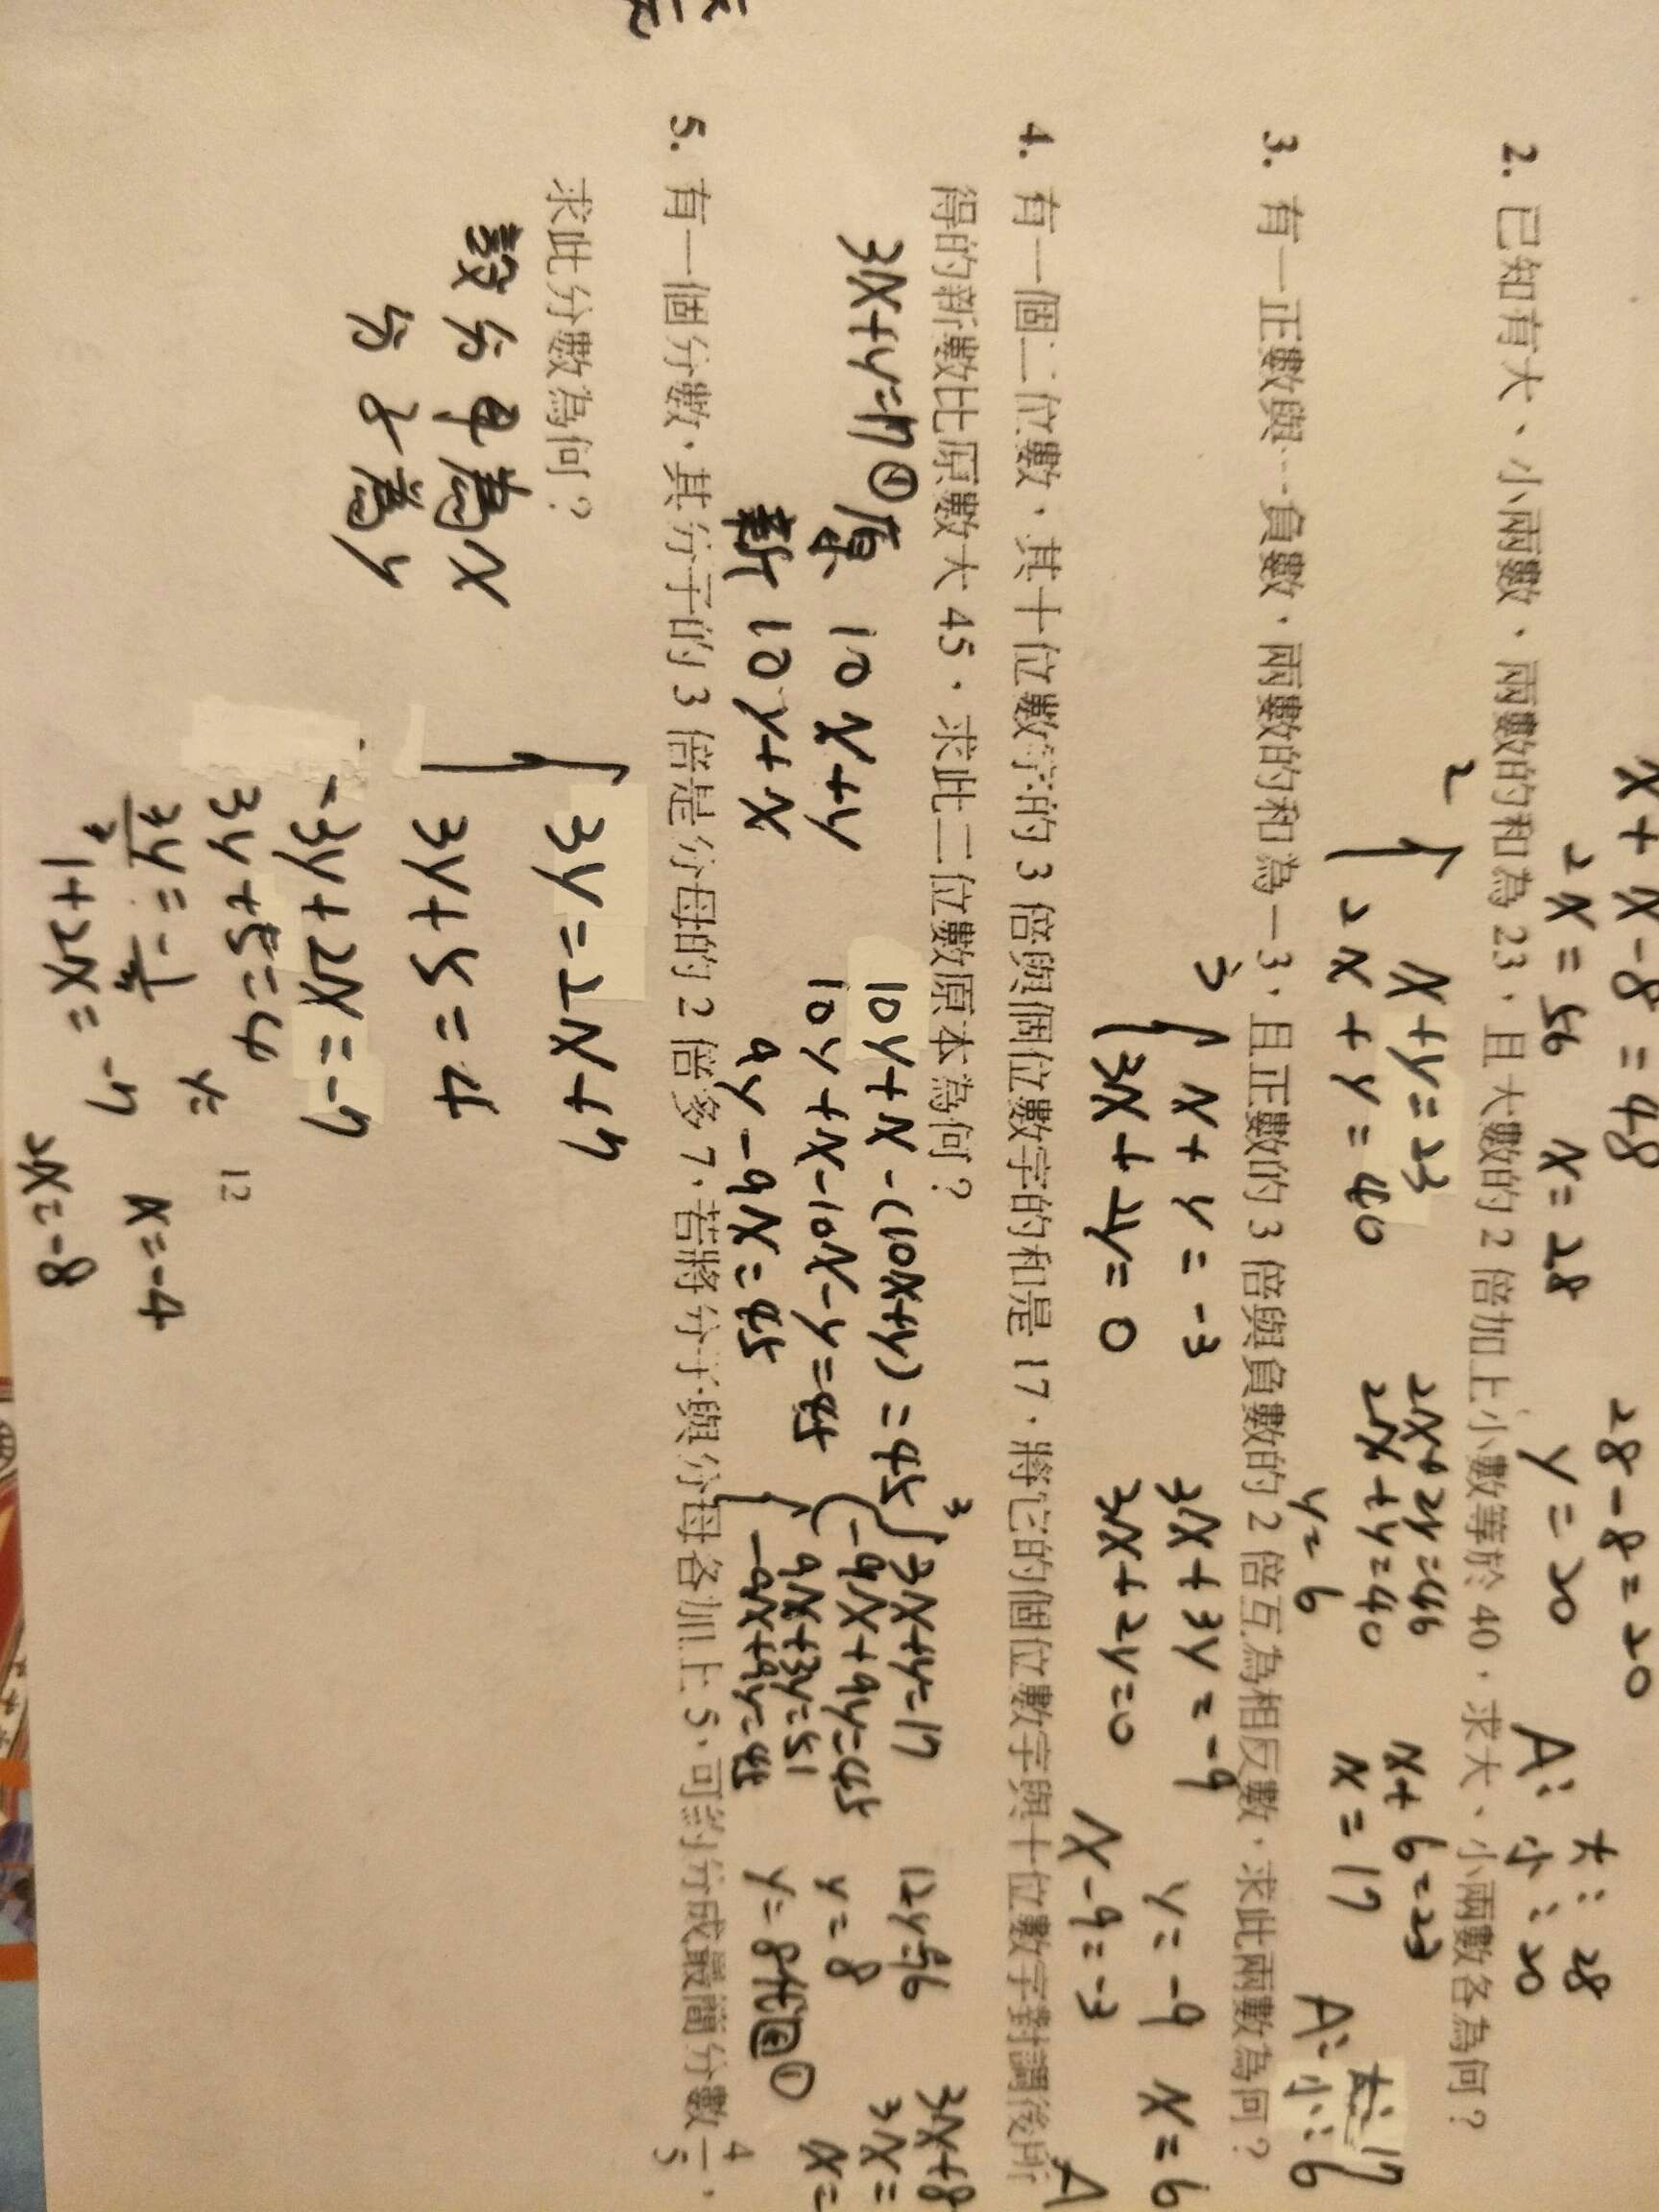 x + x - 8 = 48
28 - 8 = 20
2x = 56 x = 28 y = 20
A: 大: 28
小: 20
2. 已知有大、小兩數，兩數的和為 23，且大數的 2 倍加上小數等於 40，求大、小兩數各為何？
2 { x + y = 23
2x + y = 40
2x + 2y = 46
2x + y = 40
y = 6
x + 6 = 23
x = 17
A: 大: 17
小: 6
3. 有一正數與一負數，兩數的和為 -3，且正數的 3 倍與負數的 2 倍互為相反數，求此兩數為何？
3 { x + y = -3
3x + 2y = 0
3x + 3y = -9
3x + 2y = 0
y = -9 x = 6
x - 9 = -3
A
4. 有一個二位數，其十位數字的 3 倍與個位數字的和是 17，將它的個位數字與十位數字對調後所
得的新數比原數大 45，求此二位數原本為何？
3x + y = 17 ①
原 10x + y
新 10y + x
10y + x - (10x + y) = 45
10y + x - 10x - y = 45
9y - 9x = 45
-9x + 9y = 45
9x + 3y = 51
-9x + 9y = 45
12y = 96
y = 8
y = 8 代回 ①
3x + 8
3x =
x =
5. 有一個分數，其分子的 3 倍是分母的 2 倍多 7，若將分子與分母各加上 5，可約分成最簡分數 4/5，
求此分數為何？
設分母為 x
分子為 y
{ 3y = 2x + 7
3y + 5 = 4
-3y + 2x = -7
3y + 5 = 4
y =
12
1 + 2x = -7
x = -4
2x = -8